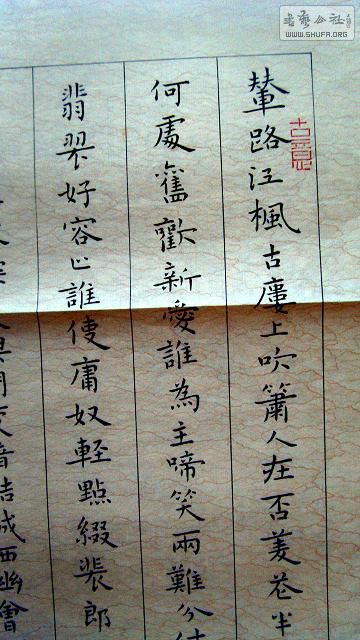 書藝公社
WWW.SHUFA.ORG
古意
輦路江楓古廔上吹簫人在否菱花半
何處舊歡新愛誰為主啼笑兩難分
翡翠好容止誰使庸奴輕點綴裴郎
成西幽會